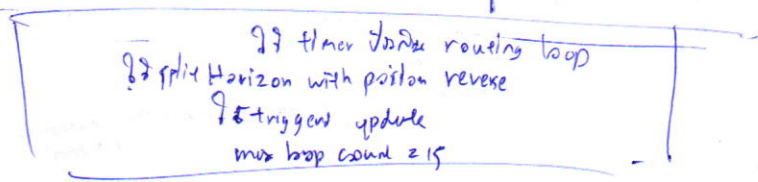 ใช้ timer ป้องกัน routing loop
ใช้ split Horizon with poison reverse
ใช้ triggerd update
max hop count = 15